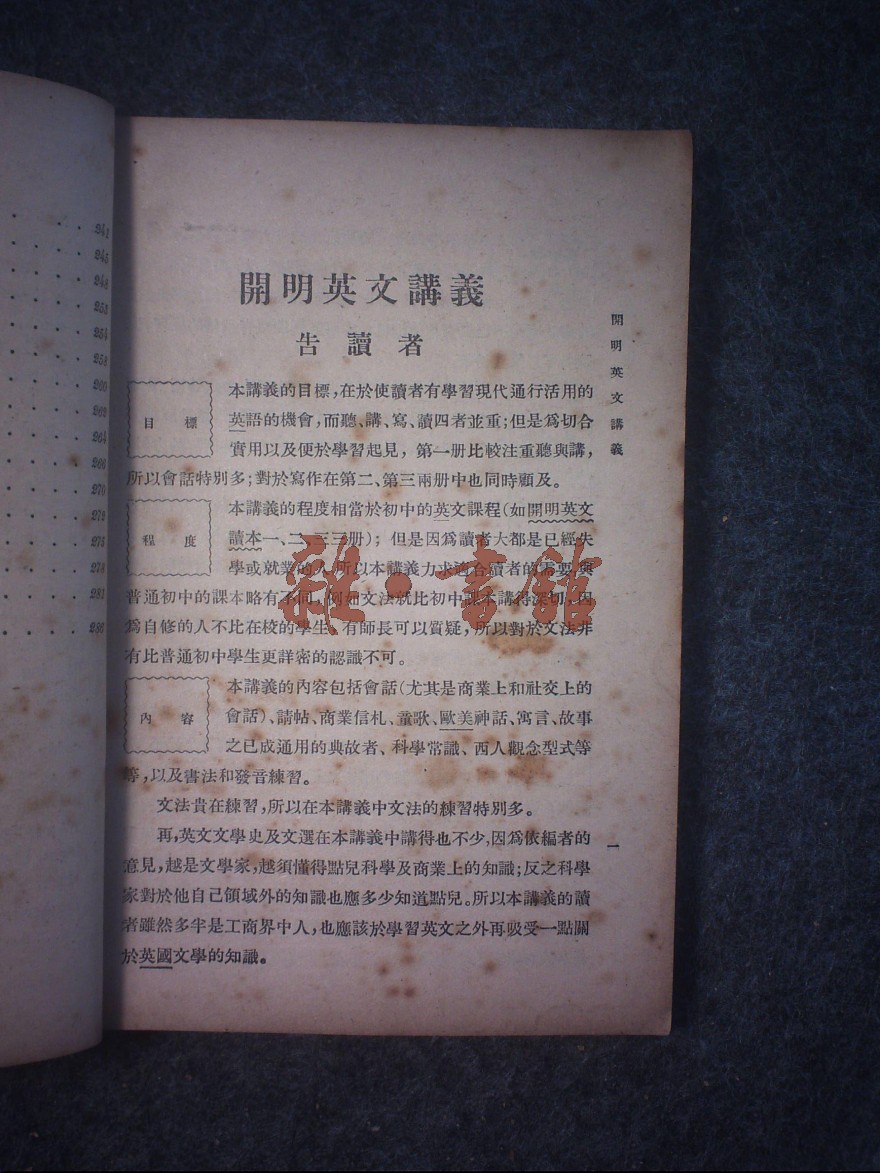 241
245
248
253
254
258
260
262
264
266
270
272
275
278
281
286
開明英文講義
告讀者
目標
本講義的目標,在於使讀者有學習現代通行活用的
英語的機會,而聽、講、寫、讀四者並重;但是爲切合
實用以及便於學習起見,第一册比較注重聽與講,
所以會話特別多;對於寫作在第二、第三兩册中也同時顧及。
程度
本講義的程度相當於初中的英文課程(如開明英文
讀本一、二、三三册);但是因爲讀者大都是已經失
學或就業的人,所以本講義力求適合讀者的需要,與
普通初中的課本略有不同,例如文法就比初中課本講得深切,因
爲自修的人不比在校的學生,有師長可以質疑,所以對於文法非
有比普通初中學生更詳密的認識不可。
內容
本講義的內容包括會話(尤其是商業上和社交上的
會話)、請帖、商業信札、童歌、歐美神話、寓言、故事
之已成通用的典故者、科學常識、西人觀念型式等
等,以及書法和發音練習。
文法貴在練習,所以在本講義中文法的練習特別多。
再,英文文學史及文選在本講義中講得也不少,因爲依編者的
意見,越是文學家,越須懂得點兒科學及商業上的知識;反之科學
家對於他自己領域外的知識也應多少知道點兒。所以本講義的讀
者雖然多半是工商界中人,也應該於學習英文之外再吸受一點關
於英國文學的知識。
開明英文講義
一
雜·書館